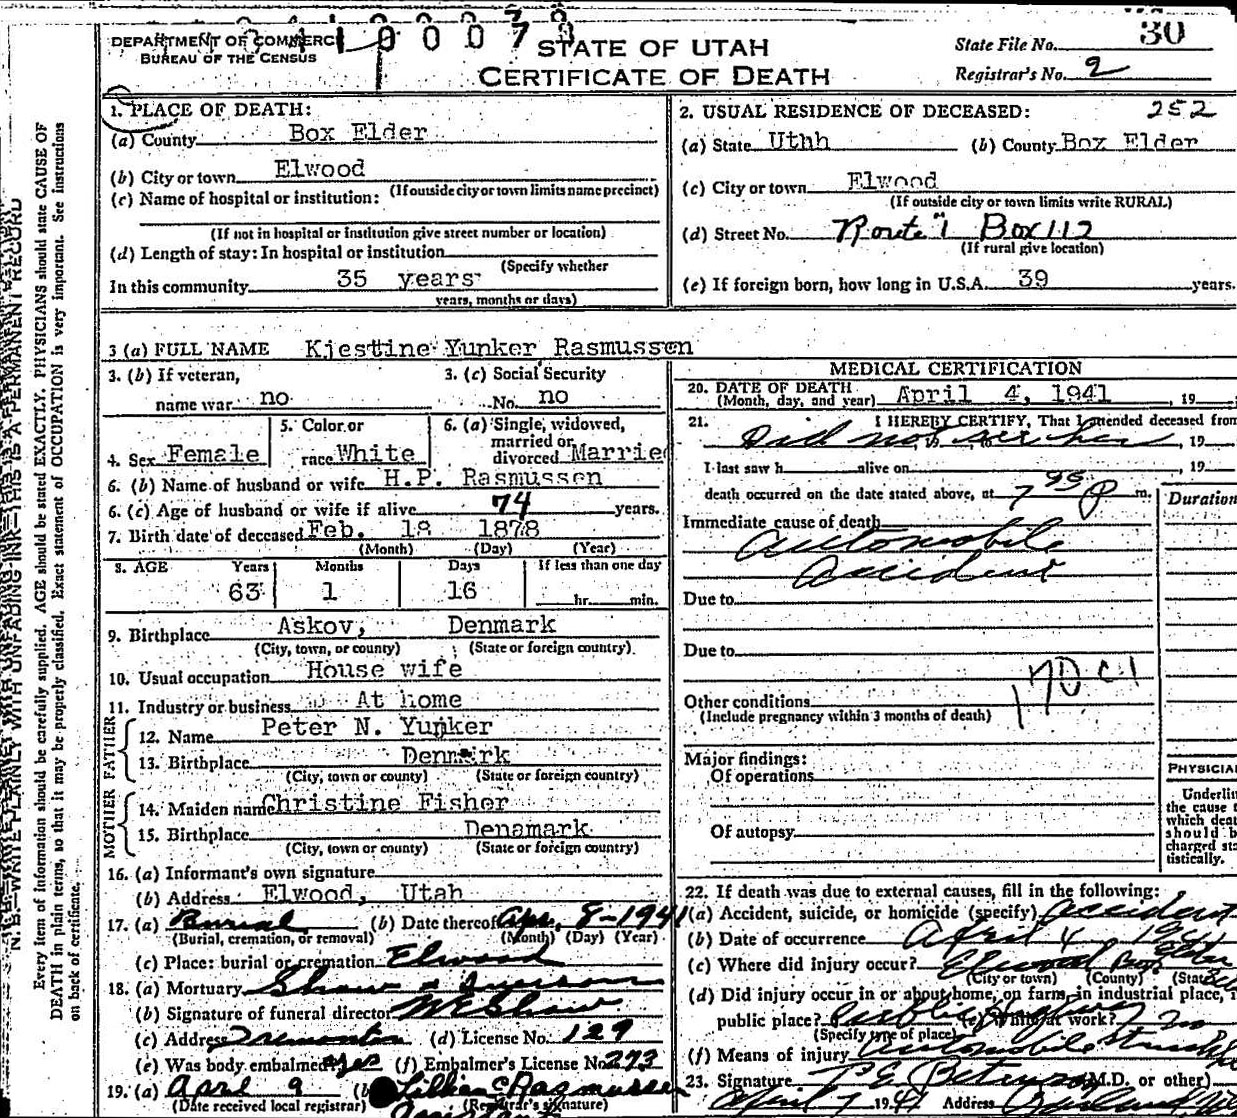 DEPARTMENT OF COMMERCE
BUREAU OF THE CENSUS
STATE OF UTAH
CERTIFICATE OF DEATH
State File No. 30
Registrar's No. 2
1. PLACE OF DEATH:
(a) County Box Elder
(b) City or town Elwood
(If outside city or town limits name precinct)
(c) Name of hospital or institution:
(If not in hospital or institution give street number or location)
(d) Length of stay: In hospital or institution
(Specify whether
In this community 35 years
years, months or days)
2. USUAL RESIDENCE OF DECEASED: 252
(a) State Uthh (b) County Box Elder
(c) City or town Elwood
(If outside city or town limits write RURAL)
(d) Street No. Route 1 Box 112
(If rural give location)
(e) If foreign born, how long in U.S.A. 39 years.
3 (a) FULL NAME Kjestine Yunker Rasmussen
3. (b) If veteran, 3. (c) Social Security
name war no No. no
4. Sex Female 5. Color or race White 6. (a) Single, widowed, married or divorced Married
6. (b) Name of husband or wife H.P. Rasmussen
6. (c) Age of husband or wife if alive 74 years.
7. Birth date of deceased Feb. 18 1878
(Month) (Day) (Year)
8. AGE Years Months Days If less than one day
63 1 16 hr. min.
9. Birthplace Askov, Denmark
(City, town, or county) (State or foreign country)
10. Usual occupation House wife
11. Industry or business At home
FATHER
12. Name Peter N. Yunker
13. Birthplace Denmark
(City, town or county) (State or foreign country)
MOTHER
14. Maiden name Christine Fisher
15. Birthplace Denamark
(City, town or county) (State or foreign country)
16. (a) Informant's own signature
(b) Address Elwood, Utah
17. (a) Burial (b) Date thereof Apr. 8-1941
(Burial, cremation, or removal) (Month) (Day) (Year)
(c) Place: burial or cremation Elwood
18. (a) Mortuary Shaw & Iverson
(b) Signature of funeral director W E Shaw
(c) Address Tremonton (d) License No. 129
(e) Was body embalmed? yes (f) Embalmer's License No. 273
19. (a) April 9 (b) Lillian C Rasmussen
(Date received local registrar) (Registrar's signature)
MEDICAL CERTIFICATION
20. DATE OF DEATH
(Month, day, and year) April 4, 1941, 19
21. I HEREBY CERTIFY, That I attended deceased from
Did not see her, 19
I last saw h alive on , 19
death occurred on the date stated above, at 7 P m.
Duration
Immediate cause of death
Automobile
Accident
Due to
Due to
170 C1
Other conditions
(Include pregnancy within 3 months of death)
Major findings:
Of operations
Of autopsy
PHYSICIAN
Underline
the cause t
which deat
should b
charged sta
tistically.
22. If death was due to external causes, fill in the following:
(a) Accident, suicide, or homicide (specify) accident
(b) Date of occurrence April 4 1941
(c) Where did injury occur? Elwood Box Elder
(City or town) (County) (State
(d) Did injury occur in or about home, on farm, in industrial place, i
public place? Public (e) While at work? no
(Specify type of place)
(f) Means of injury Automobile struck
23. Signature P E Peterson M.D. or other)
April 7 1941 Address Garland
N. B.—WRITE PLAINLY WITH UNFADING INK—THIS IS A PERMANENT RECORD
Every item of information should be carefully supplied. AGE should be stated EXACTLY. PHYSICIANS should state CAUSE OF
DEATH in plain terms, so that it may be properly classified. Exact statement of OCCUPATION is very important. See instructions
on back of certificate.